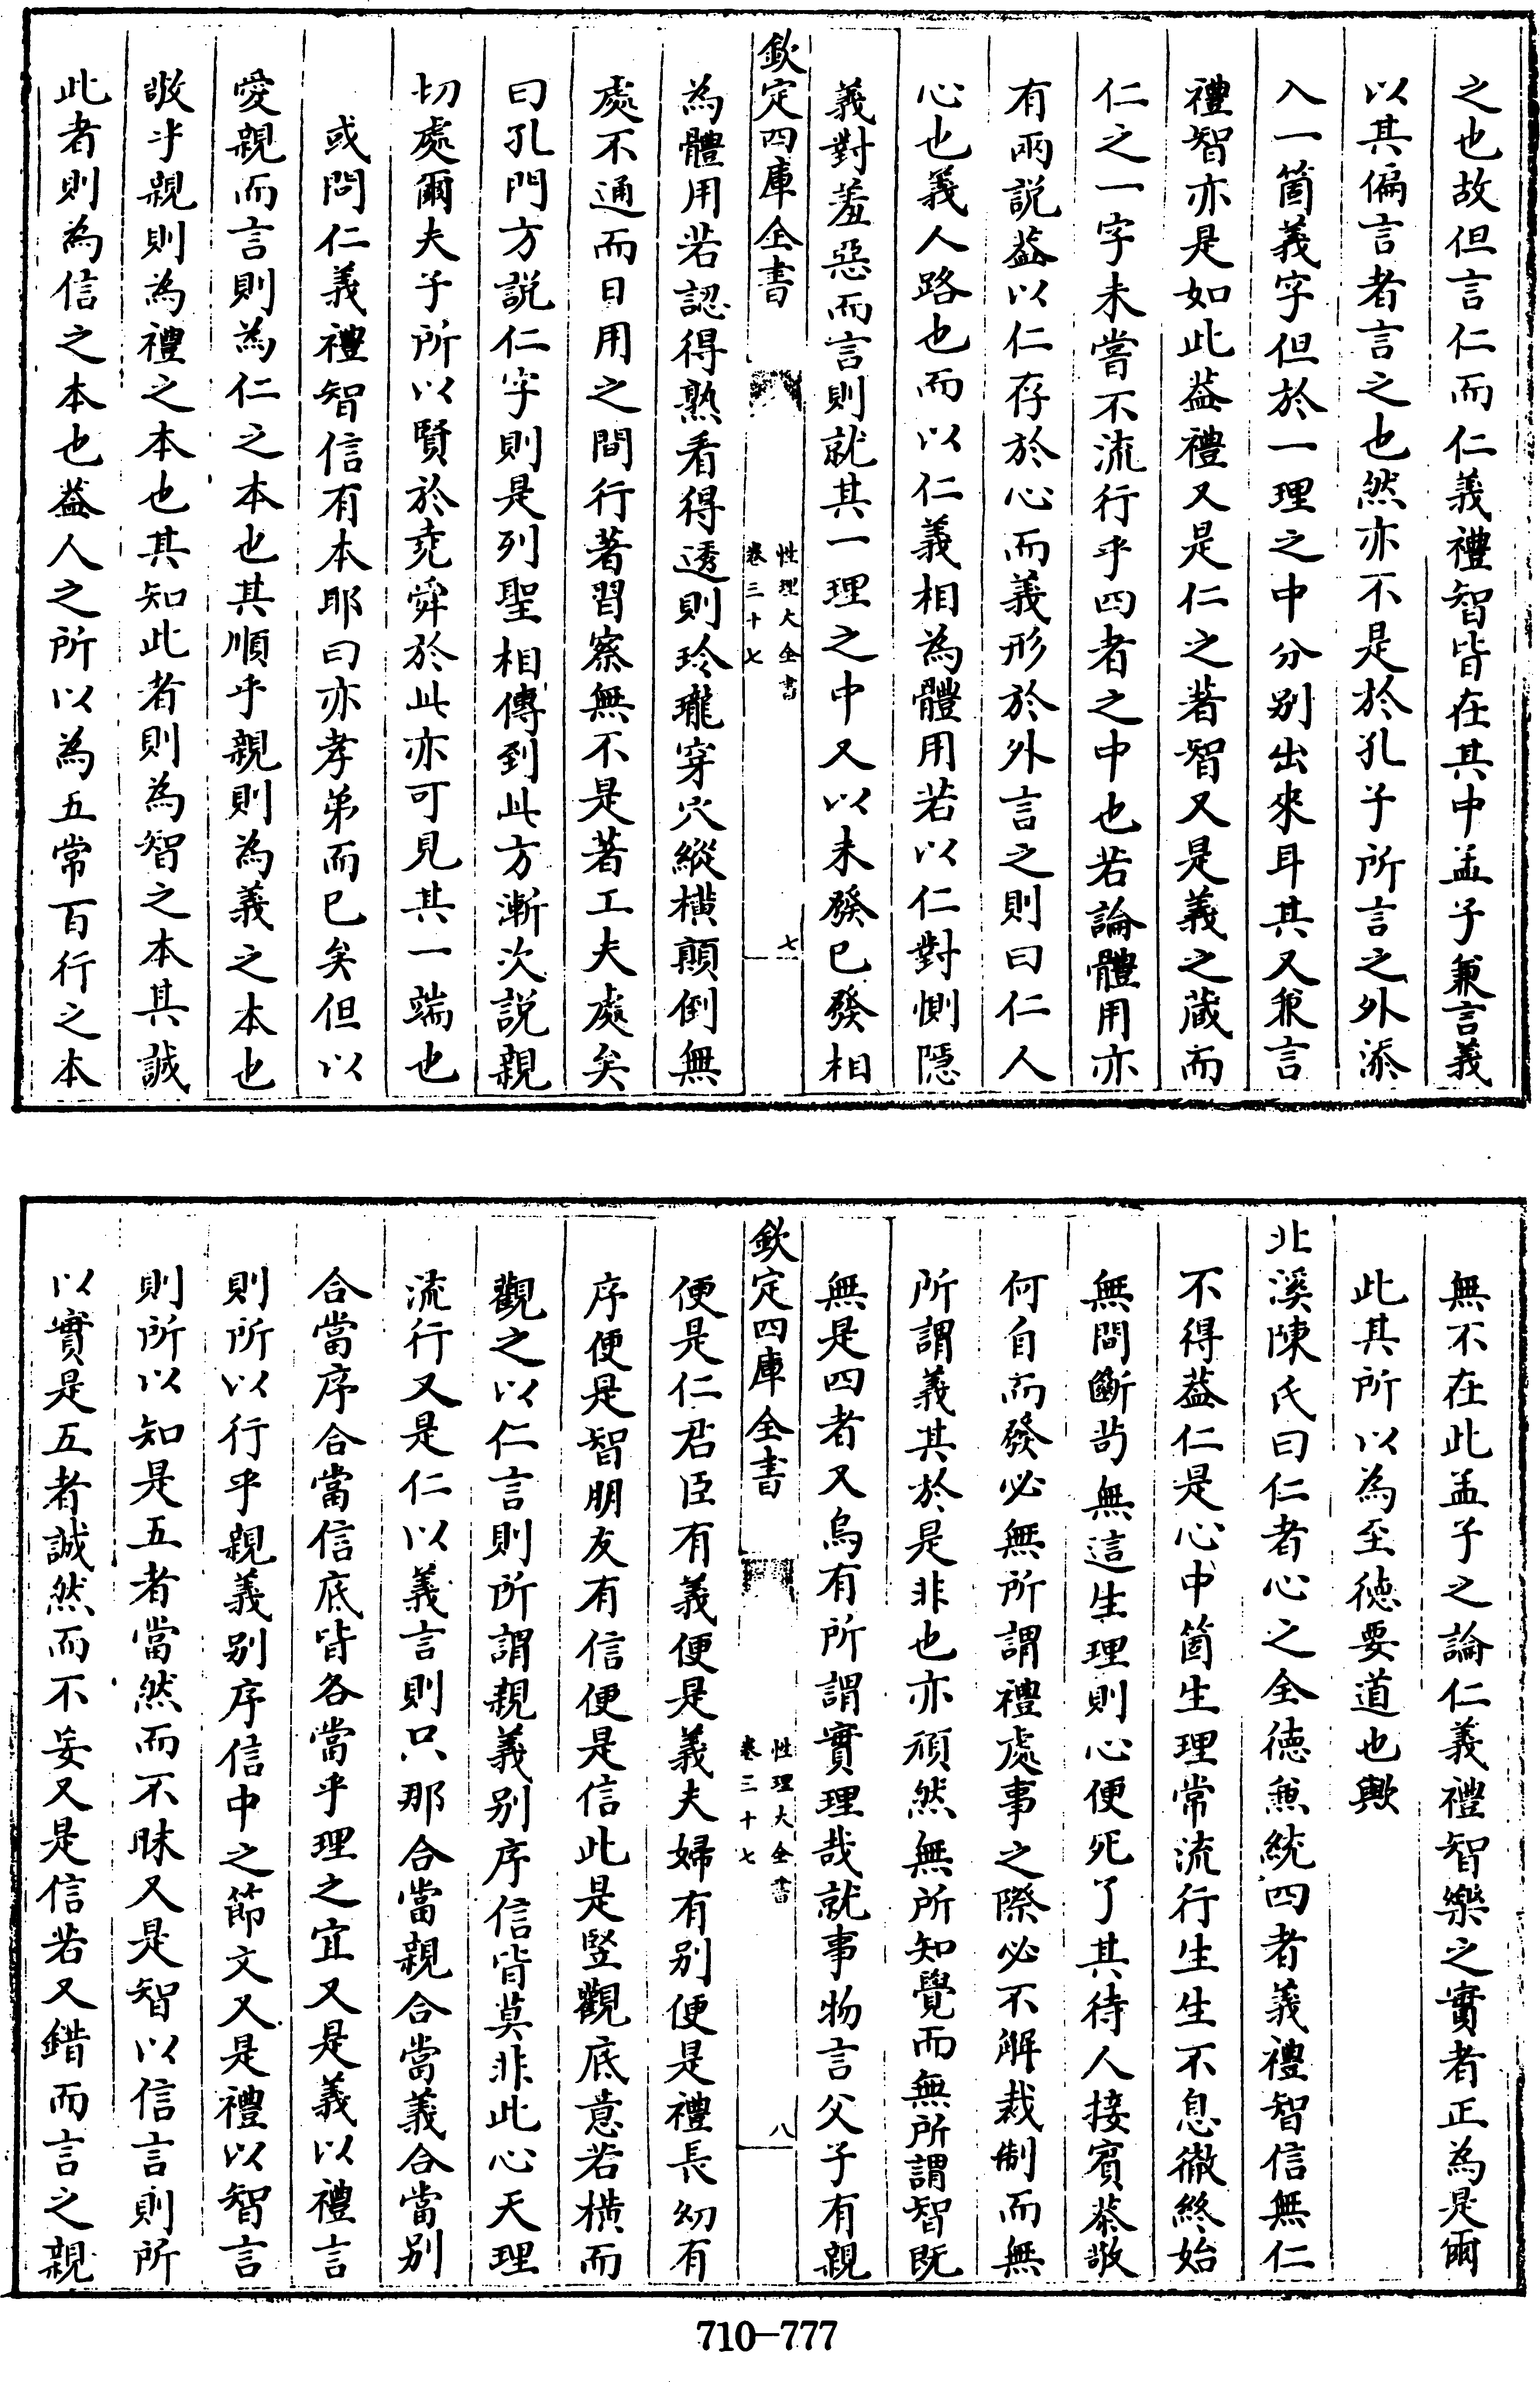 之也故但言仁而仁義禮智皆在其中孟子兼言義
以其偏言者言之也然亦不是於孔子所言之外添
入一箇義字但於一理之中分别出來耳其又兼言
禮智亦是如此葢禮又是仁之著智又是義之藏而
仁之一字未嘗不流行乎四者之中也若論體用亦
有兩説葢以仁存於心而義形於外言之則曰仁人
心也義人路也而以仁義相為體用若以仁對惻隠
義對羞惡而言則就其一理之中又以未發已發相
欽定四庫全書
性理大全書
卷三十七
七
為體用若認得熟看得透則玲瓏穿穴縱横顛倒無
處不通而日用之間行著習察無不是著工夫處矣
曰孔門方説仁字則是列聖相傳到此方漸次説親
切處爾夫子所以賢於堯舜於此亦可見其一端也
或問仁義禮智信有本耶曰亦孝弟而已矣但以
愛親而言則為仁之本也其順乎親則為義之本也
敬乎親則為禮之本也其知此者則為智之本其誠
此者則為信之本也葢人之所以為五常百行之本
無不在此孟子之論仁義禮智樂之實者正為是爾
此其所以為至徳要道也歟
北溪陳氏曰仁者心之全徳兼統四者義禮智信無仁
不得葢仁是心中箇生理常流行生生不息徹終始
無間斷茍無這生理則心便死了其待人接賔恭敬
何自而發必無所謂禮處事之際必不解裁制而無
所謂義其於是非也亦頑然無所知覺而無所謂智既
無是四者又烏有所謂實理哉就事物言父子有親
欽定四庫全書
性理大全書
卷三十七
八
便是仁君臣有義便是義夫婦有别便是禮長幼有
序便是智朋友有信便是信此是竪觀底意若横而
觀之以仁言則所謂親義别序信皆莫非此心天理
流行又是仁以義言則只那合當親合當義合當别
合當序合當信底皆各當乎理之宜又是義以禮言
則所以行乎親義别序信中之節文又是禮以智言
則所以知是五者當然而不昧又是智以信言則所
以實是五者誠然而不妄又是信若又錯而言之親
710-777